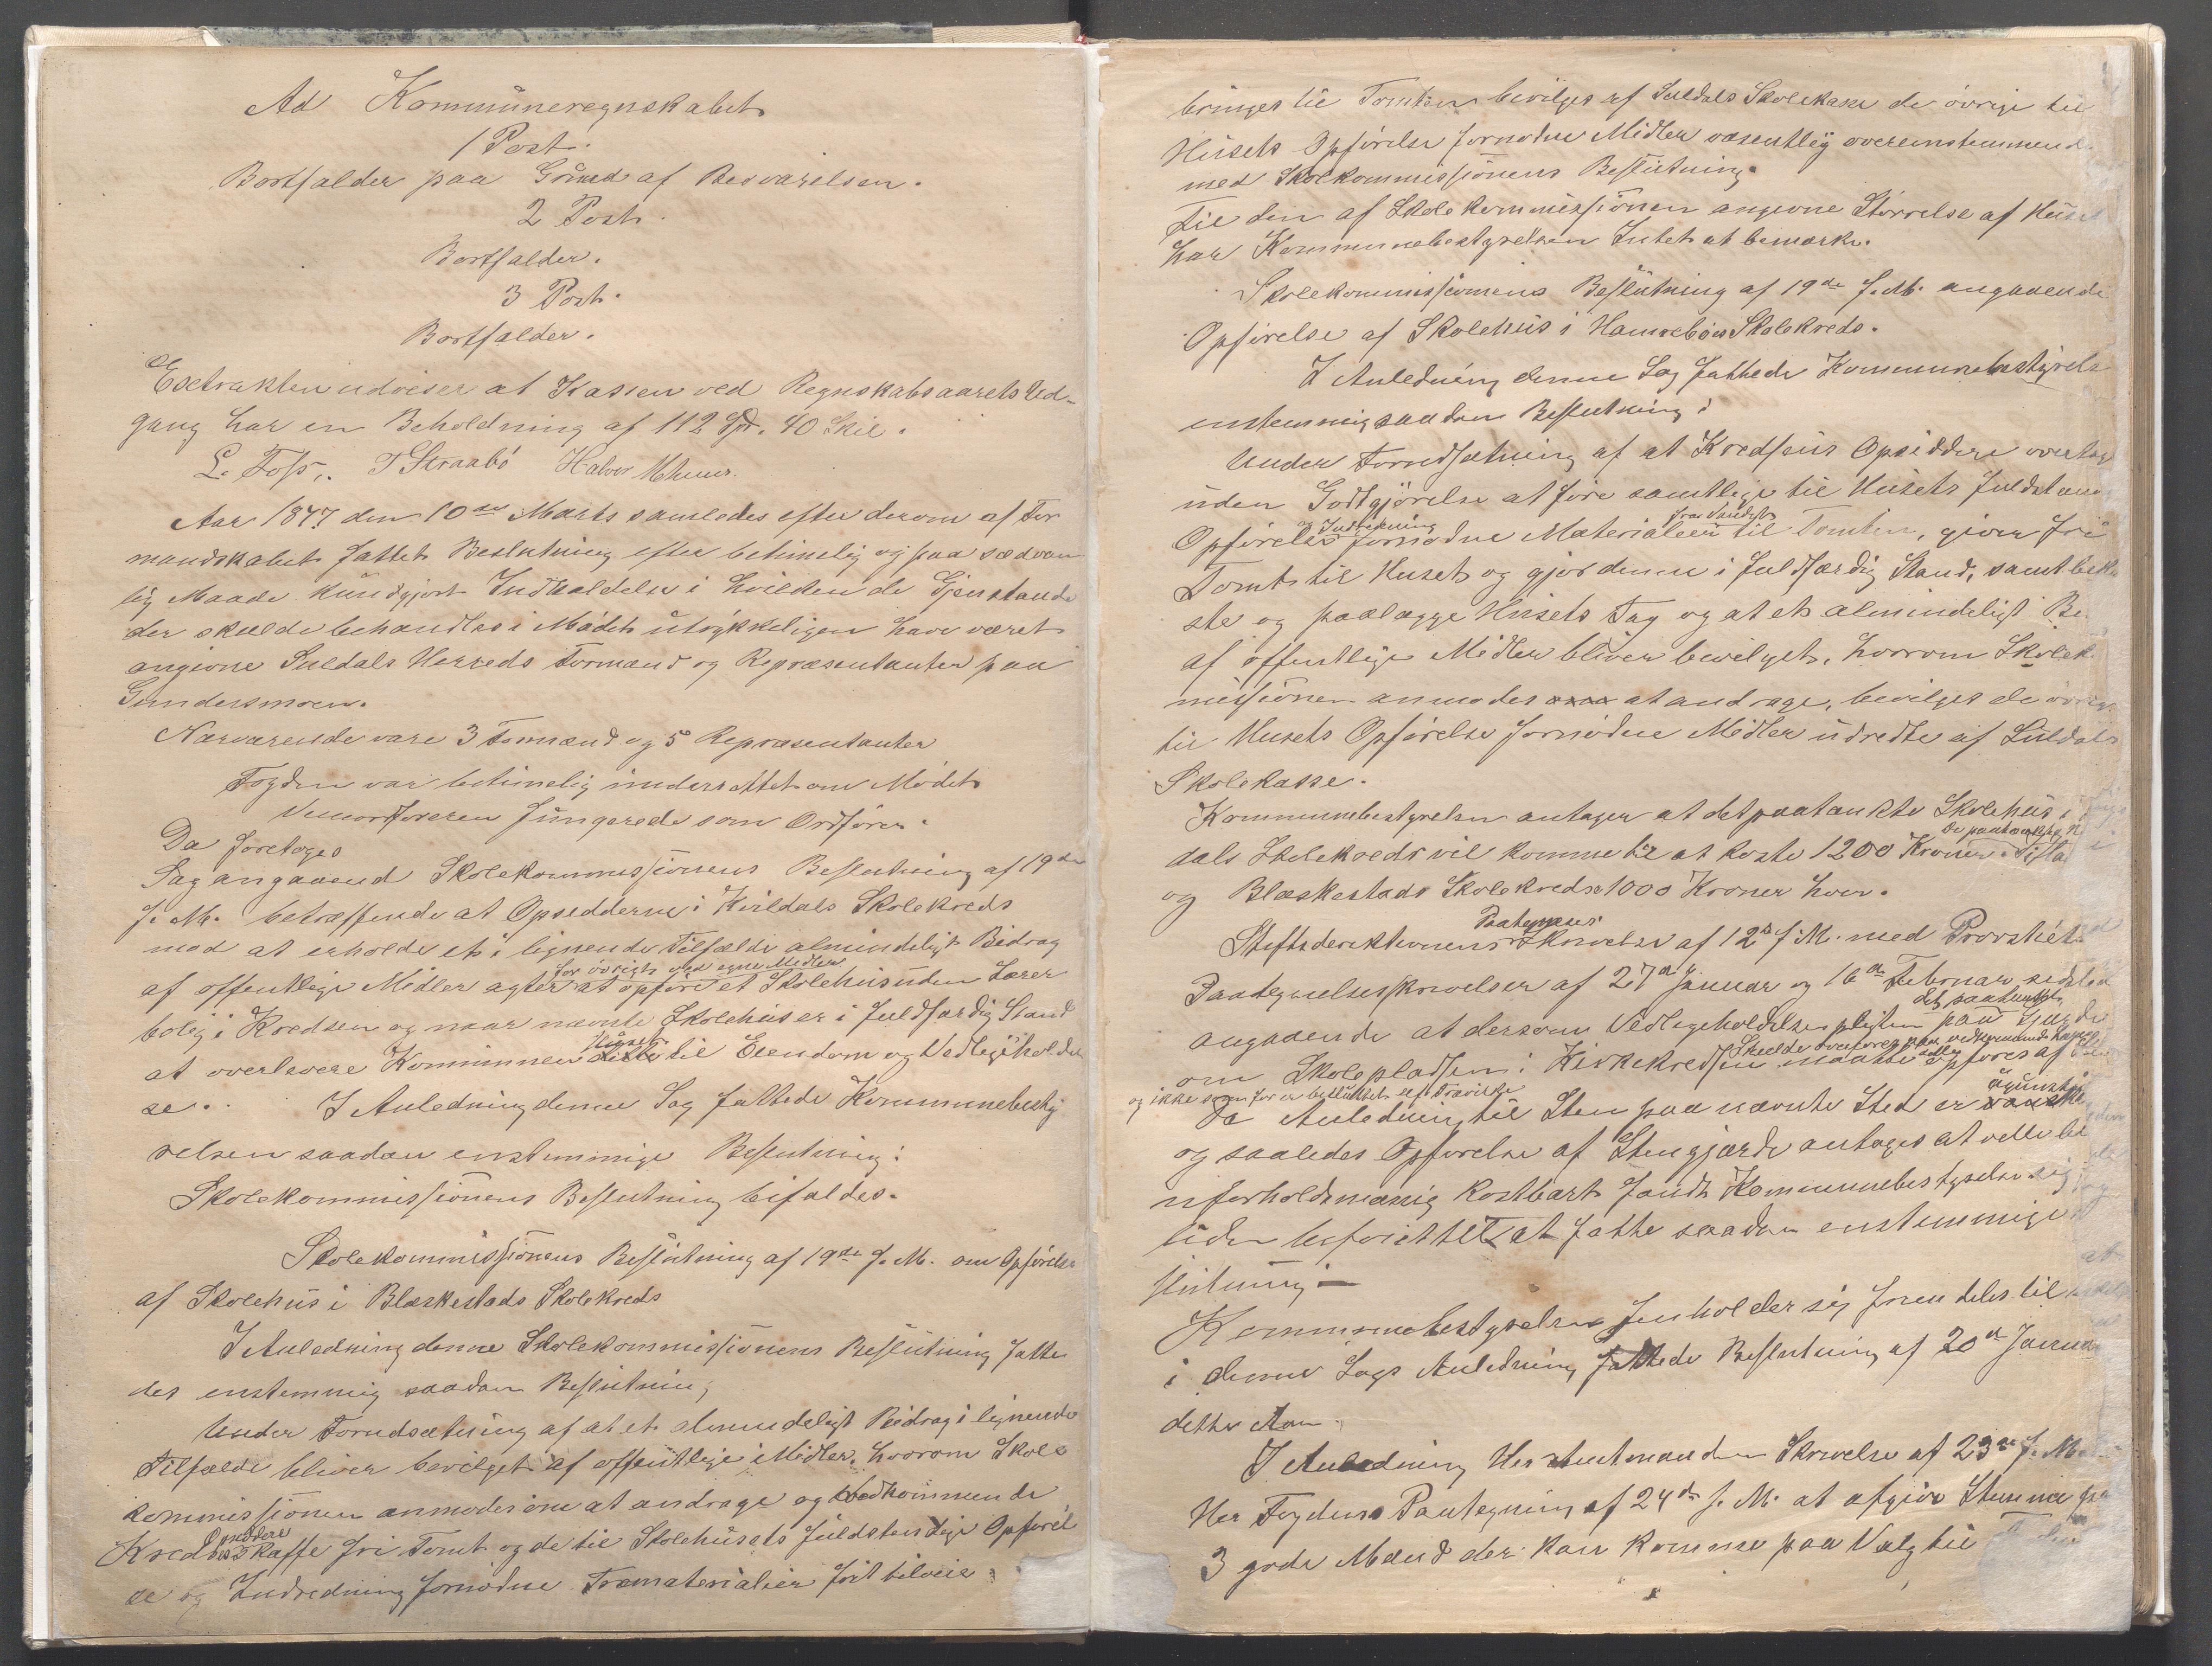 Ad Kommuneregnskabet
1 Post.
Bortfalder paa Grund af Besvarelsen.
2 Post.
Bortfalder.
3 Post.
Bortfalder.
Exetrakten udviser at Kassen ved Regnskabsaarets Ud-
gang har en Beholdning af 112 Spd. 40 Skil.
L. Foss. T Straabø Halvor Mehuus.
Aar 1877 den 10de Marts samledes efter derom af For
mandskabet fattet Beslutning efter betimelig og paa sædvan
lig Maade kundgjort Indkaldelse i hvilken de Gjenstande
der skulde behandles i Mødet utrykkeligen have været
angivne Suldals Herreds Formænd og Repræsentanter paa
Gundersmoen.
Nærværende vare 3 Formænd og 5 Repræsentanter
Fogden var betimelig underrettet om Mødet
Viceordføreren fungerede som Ordfører.
Da foretoges
Sag angaaend Skolekommissionens Beslutning af 19de
f. M. betræffende at Opsedderne i Kvildals Skolekreds
mod at erholde et i lignende Tilfælde almindeligt Bidrag
af offentlige Midler agter at opføre for øvrigt ved egne Midler et Skolehus uden Lærer
bolig i Kredsen og naar nævnte Skolehus er i fuldfærdig Stand
at overlevere Kommunen Huset til Eiendom og Vedligehol del
se. I Anledning denne Sag fattede Kommunebesty
relsen saadan enstemmige Beslutning:
Skolekommissionens Beslutning bifaldes.
Skolekommissionens Beslutning af 19de f. M. om Opførelse
af Skolehus i Blæskestads Skolekreds
I Anledning denne Skolekommissionens Beslutning fatte
des enstemmig saadan Beslutning;
Under Forudsætning af at et almindeligt Bidrag i lignende
Tilfælde bliver bevilget af offentlige Midler, hvorom Skole
kommissionen anmodes om at andrage og vedkommende
Kreds Opsiddere skaffe fri Tomt og de til Skolehusets fuldstendige Opførel
se og Indredning fornødne Træmaterialier frit tilveie
bringes til Tomten bevilges af Suldals Skolekasse de øvrige til
Husets Opførelse fornødne Midler væsentlig overensstemmend
med Skolekommissionens Beslutning.
Til den af Skolekommissionen angivne Størrelse af Huset
har Kommunebestyrelsen Intet at bemærke.
Skolekommissionens Beslutning af 19de f. M. angaaende
Opførelse af Skolehus i Hamrebøes Skolekreds.
I Anledning denne Sag fattede Kommunebestyrels
enstemmig saadan Beslutning:
Under Forudsætning af at Kredsens Opsiddere overtag
uden Godtgjørelse at føre samtlige til Husets fuldstænd
Opførelse og Indredning fornødne Materialier fra Vandet til Tomten, giver fri
Tomt til Huset og gjør denne i fuldfærdig Stand, samt beko
ste og paalægge Husets Tag og at et almindeligt Bi
af offentlige Midler bliver bevilget, hvorom Skolek
missionen anmodes at andrage, bevilges de øvrige
til Husets Opførelse fornødne Midler udredte af Suldals
Skolekasse.
Kommunebestyrelsen antager at det paatænkte Skolehus i
dals Skolekreds vil komme til at koste 1200 Kroner. De paatænkte
og Blæskestads Skolekredse 1000 Kroner hver.
Stiftsdirektionens Paategnings Skrivelse af 12te f. M. med Provstiets
Paategnelsesskrivelser af 27de Januar og 16de Februar sidstle
angaaende at dersom Vedligeholdelsespligten paa det paatænkte Gjerde
om Skolepladsen i Kirkekredsen
og ikke som før er besluttet
Da Anledning til Sten paa nævnte Sted er ugunstig
og saaledes Opførelse af Stengjærde antages at ville bli
uforholdsmæssig kostbart fandt Kommunebestyrelsen sig
uden beføiet til at fatte saadan enstemmige
slutning:—
Kommunebestyrelsen henholder sig fremdeles til
i denne Sags Anledning fattede Beslutning af 20de Januar
dette Aar.
I Anledning Her Amtmanden Skrivelse af 23de f. M.
Her Fogdens Paategning af 24de f. M. at afgive Stemme paa
3 gode Mænd der kan komme paa Valg til